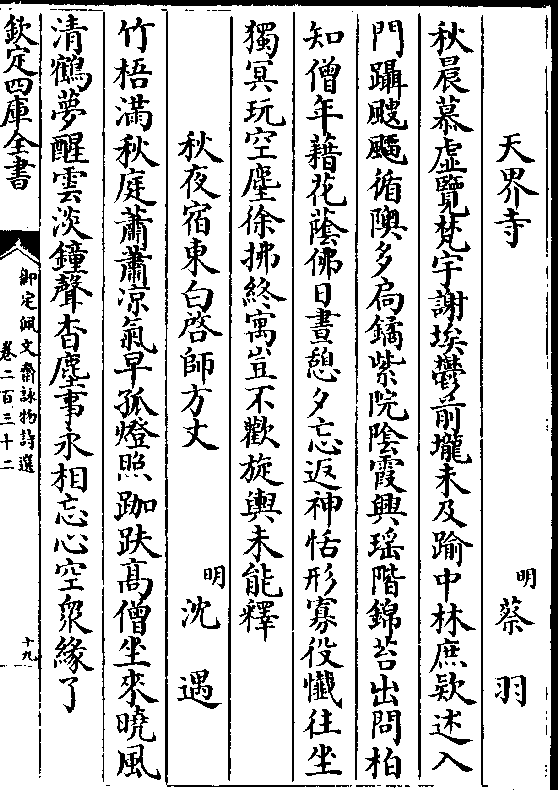 天界寺
明 蔡羽
秋晨慕虚覽梵宇謝埃鬱前壠未及踰中林庶欵述入
門躡颼飀循隩多扃鐍紫院陰霞興瑶階錦苔出問柏
知僧年藉花蔭佛日晝憩夕忘返神恬形寡役懺往坐
獨冥玩空塵徐拂終寓豈不歡旋輿未能釋
秋夜宿東白啓師方丈
明 沈遇
竹梧滿秋庭蕭蕭凉氣早孤燈照跏趺髙僧坐來曉風
清鶴夢醒雲淡鐘聲杳塵事永相忘心空衆緣了
欽定四庫全書
御定佩文齋詠物詩選
卷二百三十二
十九